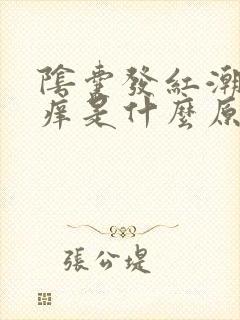 陰囊發紅潮
痒是什麼原
張公堤